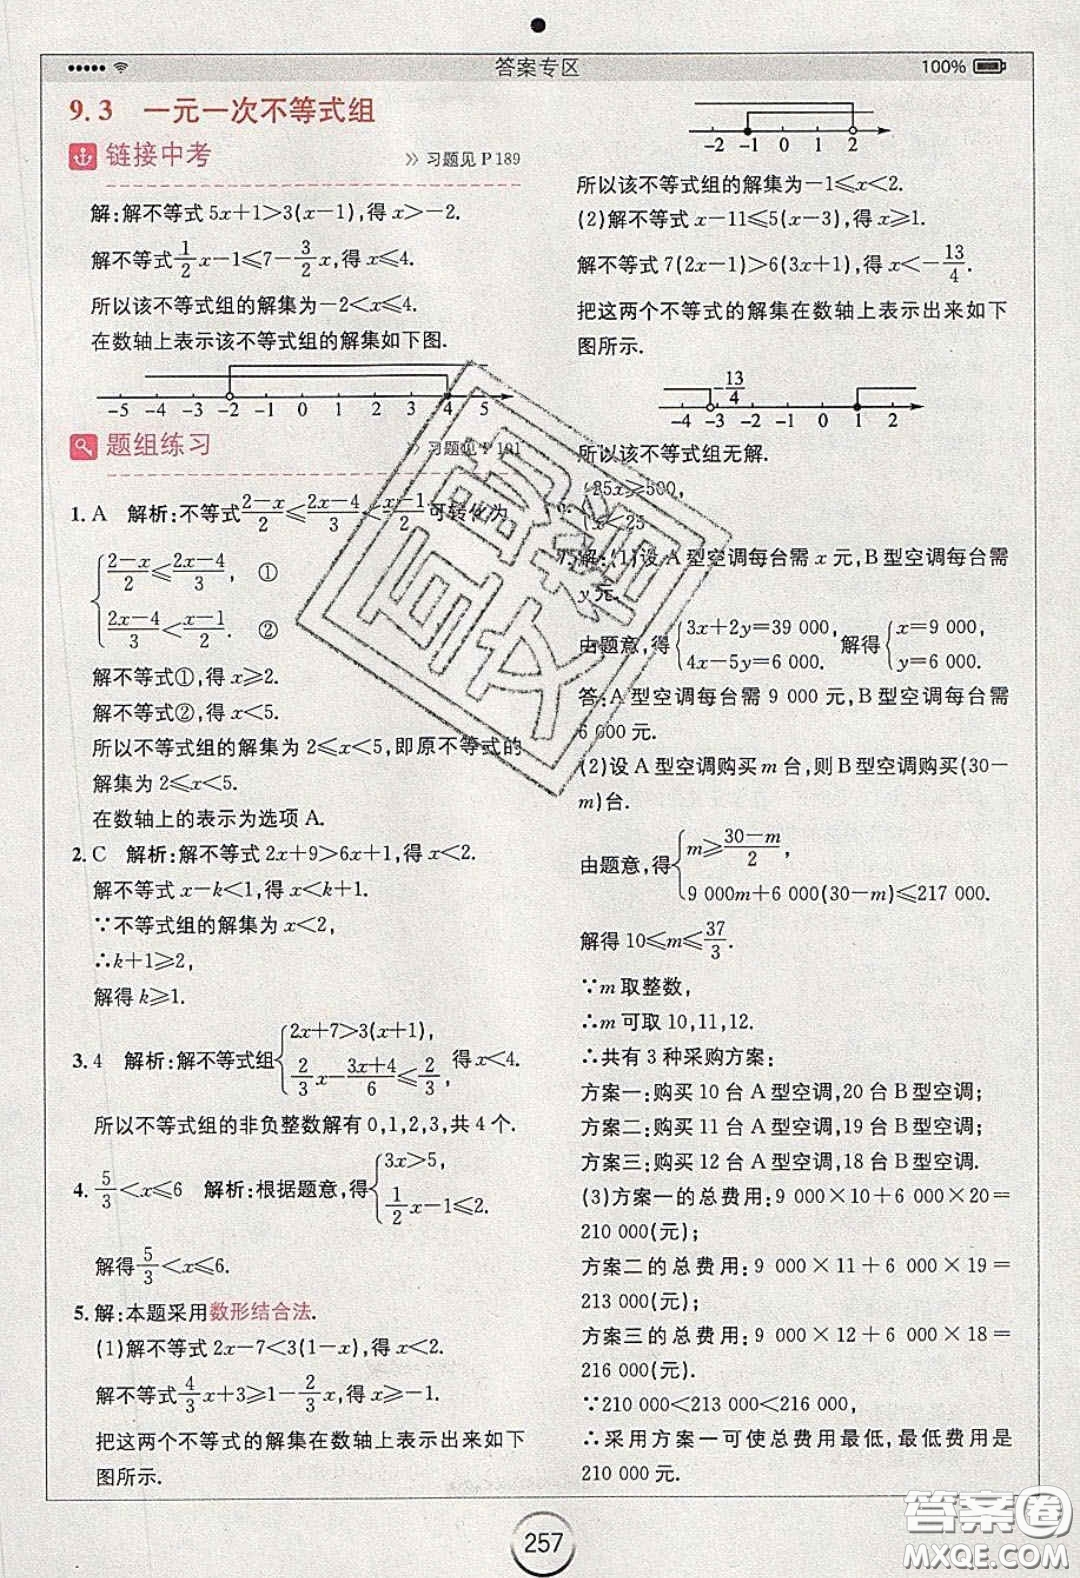 答案专区
100%
9.3 一元一次不等式组
链接中考
» 习题见 P 189
解:解不等式 5x+1>3(x-1),得 x>-2.
解不等式 1/2 x-1≤7-3/2 x,得 x≤4.
所以该不等式组的解集为-2<x≤4.
在数轴上表示该不等式组的解集如下图.
-5 -4 -3 -2 -1 0 1 2 3 4 5
题组练习
» 习题见 P 191
1. A 解析:不等式 (2-x)/2≤(2x-4)/3<(x-1)/2 可转化为
{(2-x)/2≤(2x-4)/3, ①
(2x-4)/3<(x-1)/2. ②
解不等式①,得 x≥2.
解不等式②,得 x<5.
所以不等式组的解集为 2≤x<5,即原不等式的
解集为 2≤x<5.
在数轴上的表示为选项 A.
2. C 解析:解不等式 2x+9>6x+1,得 x<2.
解不等式 x-k<1,得 x<k+1.
∵不等式组的解集为 x<2,
∴k+1≥2,
解得 k≥1.
3. 4 解析:解不等式组{2x+7>3(x+1), 2/3 x-(3x+4)/6≤2/3, 得 x<4.
所以不等式组的非负整数解有 0,1,2,3,共 4 个.
4. 5/3<x≤6 解析:根据题意,得{3x>5, 1/2 x-1≤2.
解得 5/3<x≤6.
5. 解:本题采用数形结合法.
(1)解不等式 2x-7<3(1-x),得 x<2.
解不等式 4/3 x+3≥1-2/3 x,得 x≥-1.
把这两个不等式的解集在数轴上表示出来如下
图所示.
-2 -1 0 1 2
所以该不等式组的解集为-1≤x<2.
(2)解不等式 x-11≤5(x-3),得 x≥1.
解不等式 7(2x-1)>6(3x+1),得 x<-13/4.
把这两个不等式的解集在数轴上表示出来如下
图所示.
-13/4
-4 -3 -2 -1 0 1 2
所以该不等式组无解.
6. {25x≥500, x<25
7. 解:(1)设 A 型空调每台需 x 元,B 型空调每台需
y 元.
由题意,得{3x+2y=39 000, 4x-5y=6 000. 解得{x=9 000, y=6 000.
答:A 型空调每台需 9 000 元,B 型空调每台需
6 000 元.
(2)设 A 型空调购买 m 台,则 B 型空调购买(30-
m)台.
由题意,得{m≥(30-m)/2, 9 000m+6 000(30-m)≤217 000.
解得 10≤m≤37/3.
∵m 取整数,
∴m 可取 10,11,12.
∴共有 3 种采购方案:
方案一:购买 10 台 A 型空调,20 台 B 型空调;
方案二:购买 11 台 A 型空调,19 台 B 型空调;
方案三:购买 12 台 A 型空调,18 台 B 型空调.
(3)方案一的总费用:9 000×10+6 000×20=
210 000(元);
方案二的总费用:9 000×11+6 000×19=
213 000(元);
方案三的总费用:9 000×12+6 000×18=
216 000(元).
∵210 000<213 000<216 000,
∴采用方案一可使总费用最低,最低费用是
210 000 元.
257
答案圈
MXQE.COM